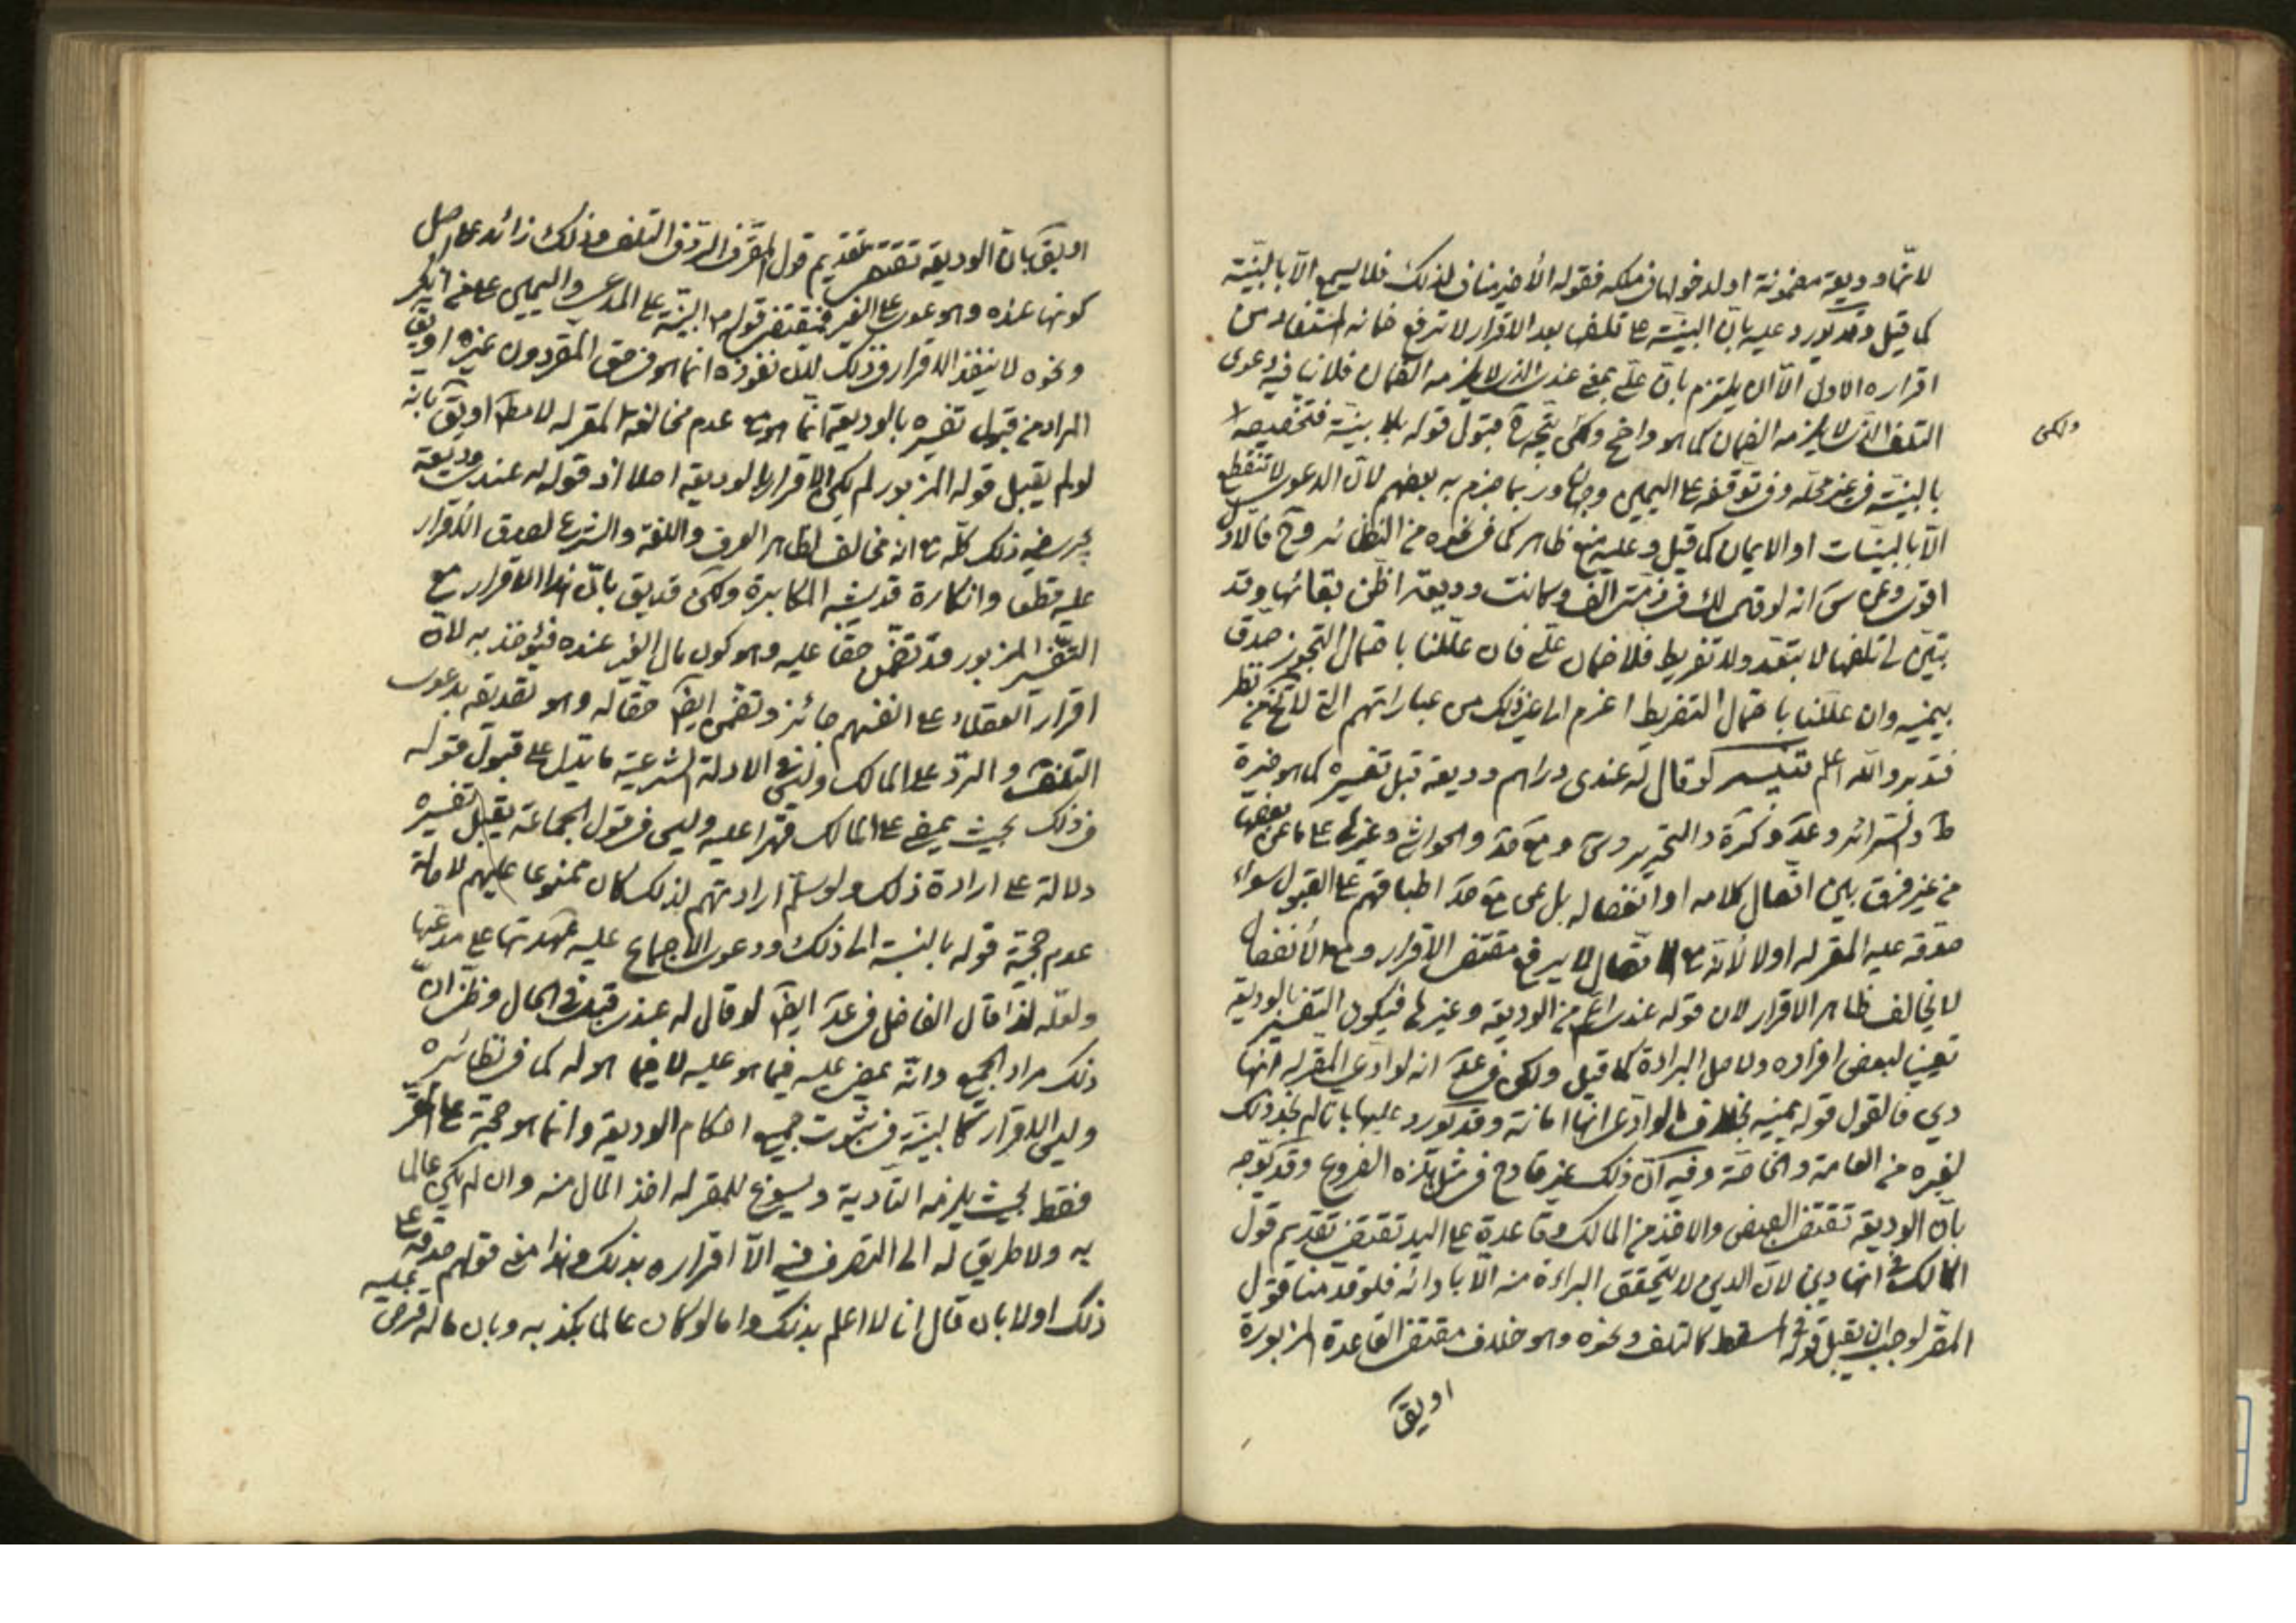 لانها وديعة مضمونة او لدخولها في ملكه فقوله الأخير مناف لذلك فلا يسمع الا بالبينة
كما قيل وقد يورد عليه بان البينة على تلفها بعد الاقرار لا ترفع ضمانه المستفاد من
اقراره الاول الا ان يلتزم بان علي بمعنى عندي الذي لا يلزمه الضمان فلا ينافيه دعوى
التلف الذي لا يلزمه الضمان كما هو واضح ولكن يتجه قبول قوله بلا بينة فتخصيصه
ولكن
بالبينة في غير محله وفي توقفه على اليمين وجهان وربما جزم به بعضهم لان الدعوى لا تنقطع
الا بالبينات او الايمان كما قيل وعليه منع ظاهر كما في نحوه من النظائر وح فالاول
اقوى وعن س انه لو قال لك في ذمتي الف وكانت وديعة اظن بقائها وقد
تبين لي تلفها لا بتعد ولا تفريط فلا ضمان علي فان عللنا باحتمال التجوز صدق
بيمينه وان عللنا باحتمال التفريط اغرم الى غير ذلك من عباراتهم التي لا تخ من نظر
فتدبر والله اعلم لو قال له عندي دراهم وديعة قبل تفسيره كما هو خيرة
ط والشرائع وعد وكرة والتحرير وس ومع صد والحواشي وغيرها على ما عن بعضها
من غير فرق بين اتصال كلامه او انفصاله بل عن مع صد اطباقهم على القبول سواء
صدقه عليه المقر له او لا لأنه مع الاتصال لا يرفع مقتضى الاقرار ومع الأنفصال
لا يخالف ظاهر الاقرار لان قوله عندي اعم من الوديعة وغيرها فيكون التفسير بالوديعة
تعيينا لبعض افراده ولاصل البراءة كما قيل ولكن في عد انه لو ادعى المقر له انها
دين فالقول قوله بيمينه بخلاف ما لو ادعى انها امانة وقد يورد عليها بانا لم نجد ذلك
لغيره من العامة والخاصة وفيه ان ذلك غير قادح في مثل هذه الفروع وقد يوجه
بان الوديعة تقتضي القبض والاخذ من المالك وقاعدة على اليد تقتضي تقديم قول
المالك في انها دين لان الدين لا يتحقق البراءة منه الا بادائه فلو قدمنا قول
المقر لوجب ان يقبل قوله في المسقط كالتلف ونحوه وهو خلاف مقتضى القاعدة المزبورة
او يق
او يق بان الوديعة تقتضي تقديم قول المقر في الرد في التلف وذلك زائد على اصل
كونها عنده وهو دعوى على الغير فيقتضي قوله البينة على المدعي واليمين على من انكر
ونحوه لا ينفذ الاقرار في ذلك لان نفوذه انما هو في حق المقر دون غيره او يق
المراد من قبول تفسيره بالوديعة انما هو مع عدم مخالفة المقر له لا مط او يق بانه
لو لم يقبل قوله المزبور لم يكن الاقرار بالوديعة اصلا اذ قوله له عندي وديعة
يجري فيه ذلك كله مع انه مخالف لظاهر العرف واللغة والشرع لصدق الاقرار
عليه قطعا وانكاره قد يشبه المكابرة ولكن قد يق بان هذا الاقرار مع
التفسير المزبور قد تضمن حقا عليه وهو كون مال الغير عنده فيؤخذ به لان
اقرار العقلاء على انفسهم جائز وتضمن ايض حقا له وهو تصديقه بدعوى
التلف والرد على المالك وليس في الادلة الشرعية ما يدل على قبول قوله
في ذلك بحيث يمضي على المالك قهرا عليه وليس في قول الجماعة يقبل تفسيره
دلالة على ارادة ذلك ولو سلم ارادتهم لذلك كان ممنوعا عليهم لاصالة
عدم حجية قوله بالنسبة الى ذلك ودعوى الاجماع عليه عهدتها على مدعيها
ولعله لذا قال الفاضل في عد ايض لو قال له عندي قبل في الحال وظن ان
ذلك مراد الجميع وانه يمضي عليه فيما هو عليه لا فيما هو له كما في نظائره
وليس الاقرار كالبينة في ثبوت جميع احكام الوديعة وانما هو حجة على المقر
فقط بحيث يلزمه التأدية ويسوغ للمقر له اخذ المال منه وان لم يكن عالما
به ولا طريق له الى التصرف فيه الا اقراره بذلك وهذا معنى قولهم صدقه على
ذلك او لا بان قال انا لا اعلم بذلك واما لو كان عالما بكذبه وبان ماله قرض عليه